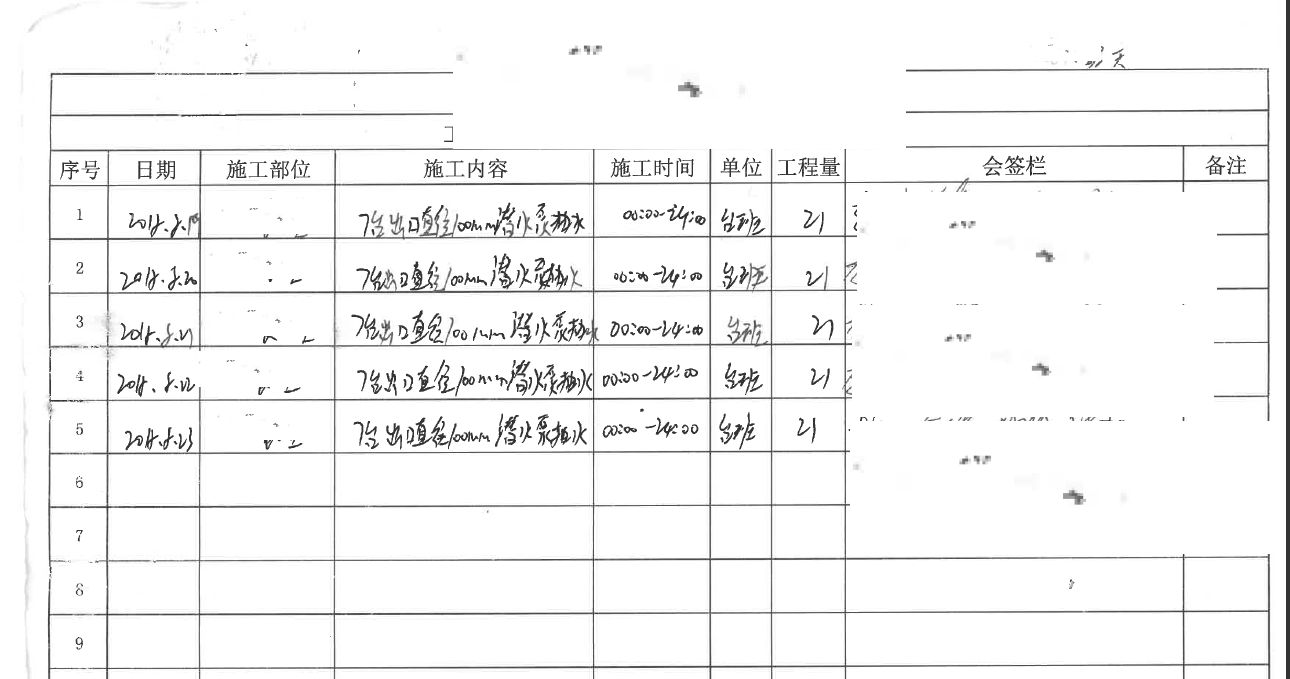 天
序号 日期 施工部位 施工内容 施工时间 单位 工程量 会签栏 备注
1 2018.8.19 7台出口直径100mm潜水泵抽水 00:00-24:00 台班 21
2 2018.8.20 7台出口直径100mm潜水泵抽水 00:00-24:00 台班 21
3 2018.8.21 7台出口直径100mm潜水泵抽水 00:00-24:00 台班 21
4 2018.8.22 7台出口直径100mm潜水泵抽水 00:00-24:00 台班 21
5 2018.8.23 7台出口直径100mm潜水泵抽水 00:00-24:00 台班 21
6
7
8
9